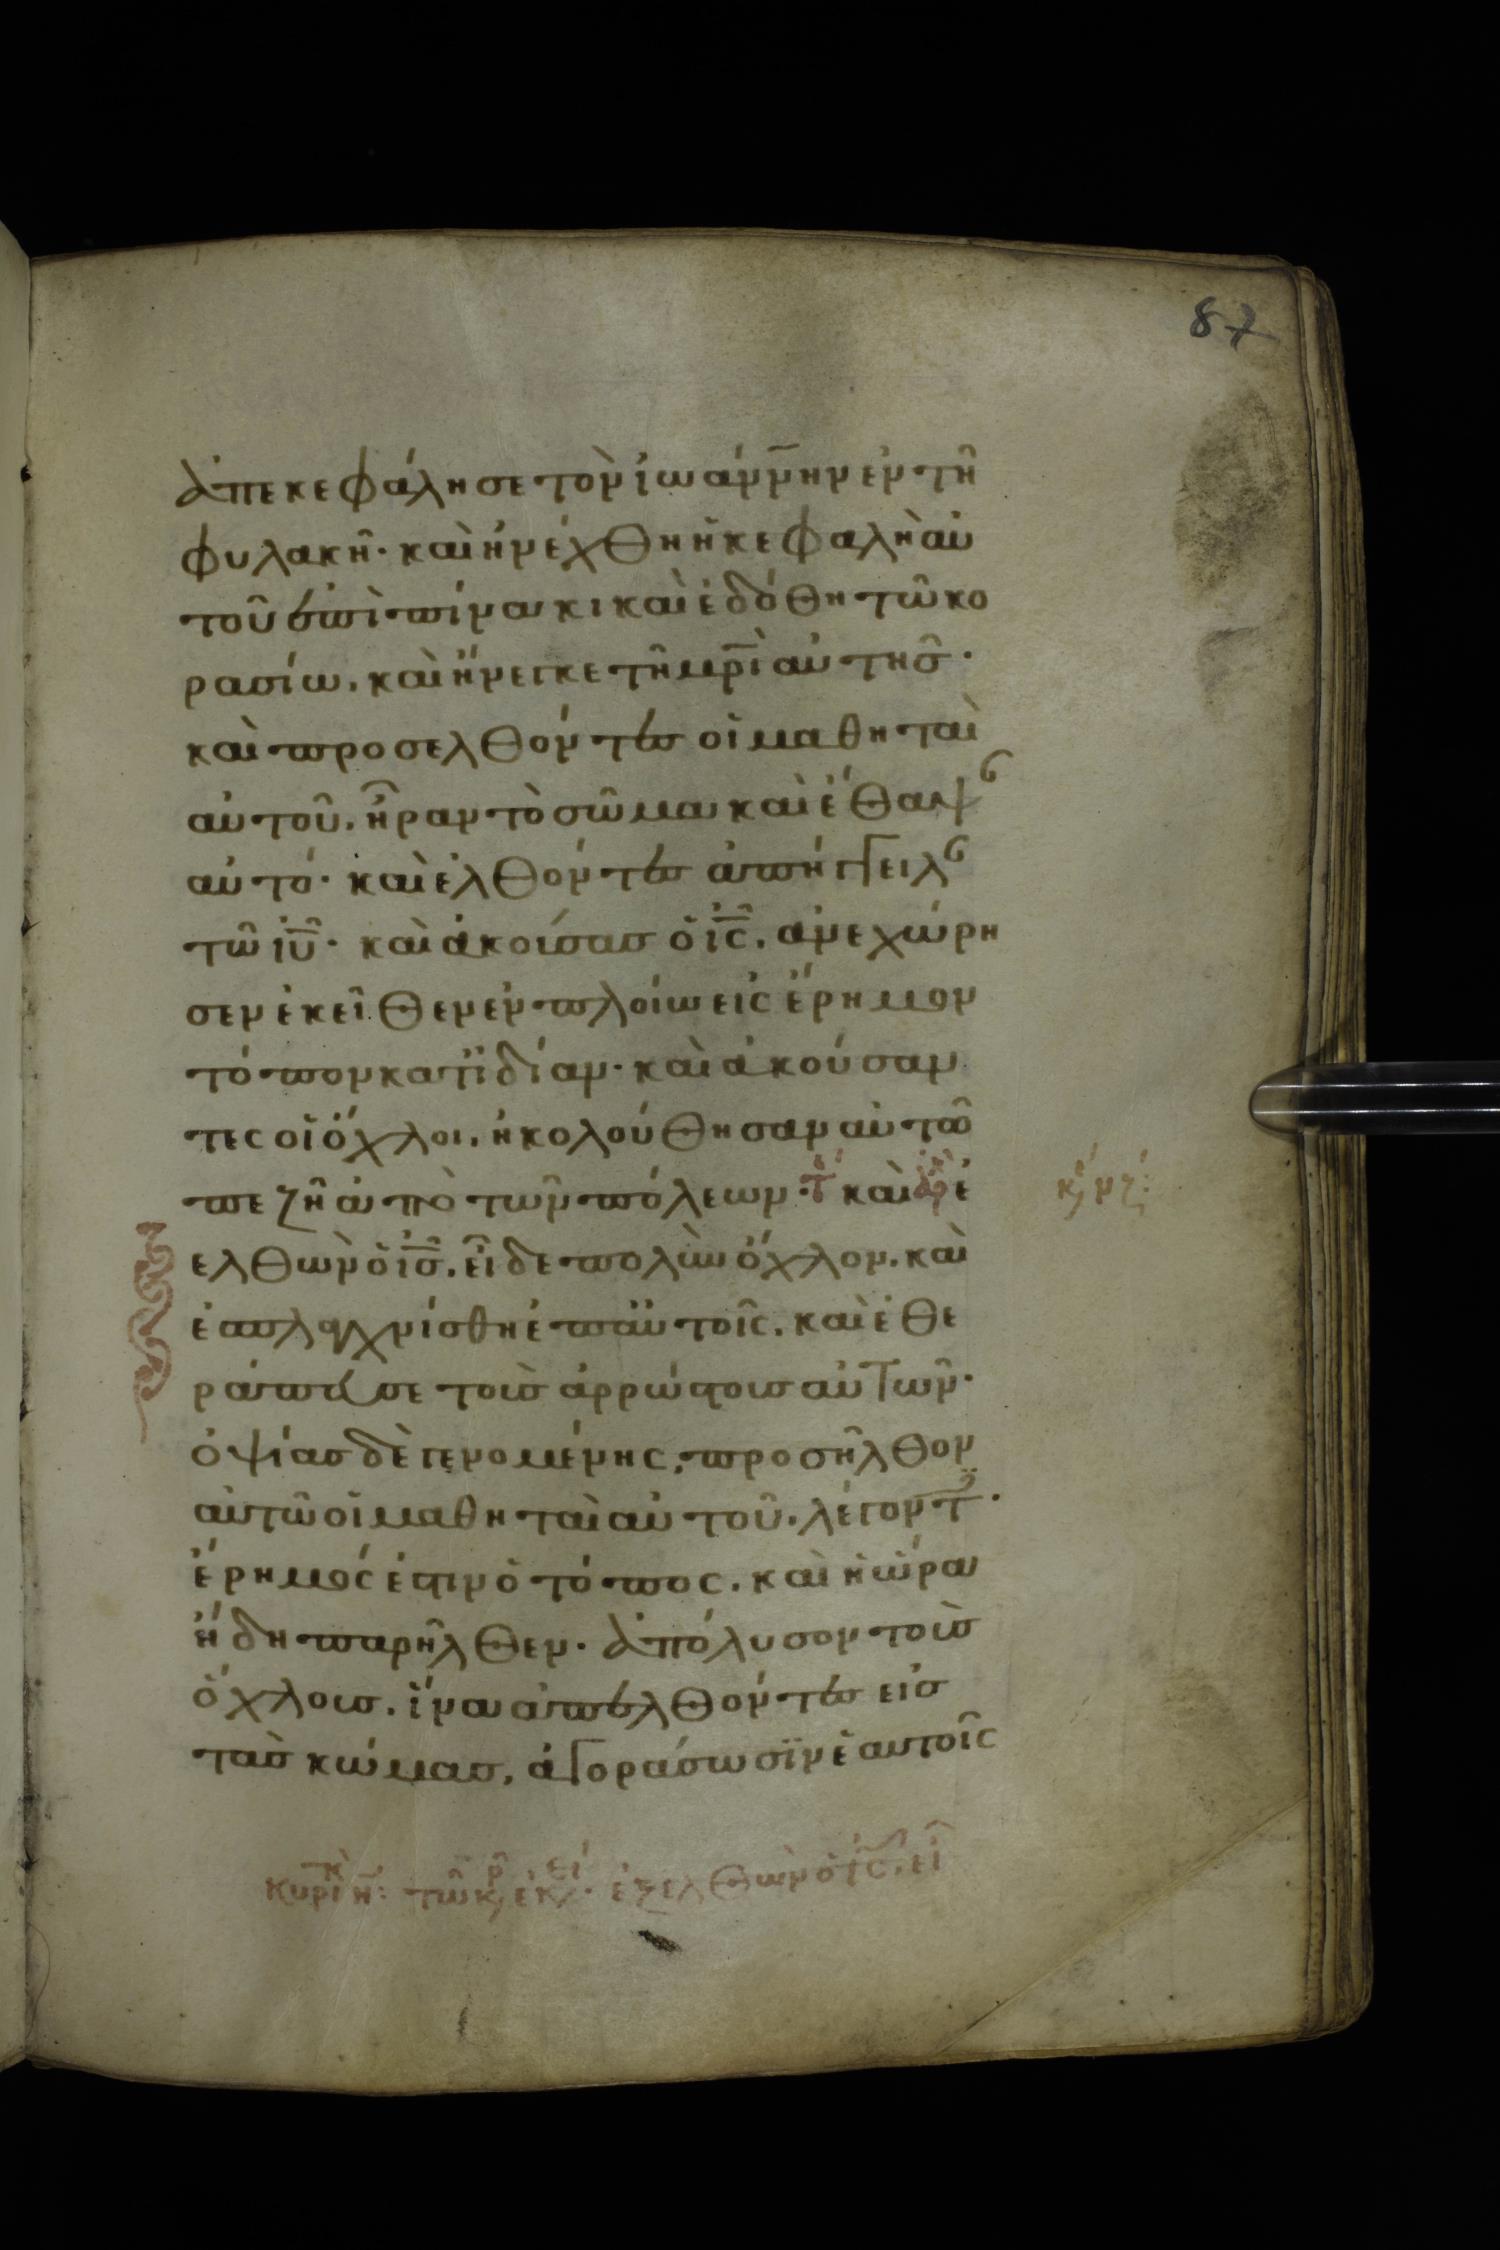 87
ἀπεκεφάλησε τὸν ἰωάννην ἐν τῆ
φυλακῆ· καὶ ἠνέχθη ἡ κεφαλὴ αὐ
τοῦ ἐπὶ πίνακι καὶ ἐδόθη τῶ κο
ρασίω, καὶ ἤνεγκε τῆ μρ̅ὶ αὐτῆς·
καὶ προσελθόντες οἱ μαθηταὶ
αὐτοῦ, ἦραν τὸ σῶμα καὶ ἔθαψ
αὐτό· καὶ ἐλθόντες ἀπήγγειλ
τῶ ἰυ̅· καὶ ἀκούσας ὁ ἰς̅, ἀνεχώρη
σεν ἐκεῖθεν ἐν πλοίω εἰς ἔρημον
τόπον κατϊδίαν· καὶ ἀκούσαν
τες οἱ ὄχλοι, ἠκολούθησαν αὐτῶ
πεζῆ ἀπὸ τῶν πόλεων· καὶ ἐ
κ, νζ:
ελθὼν ὁ ἰς̅, εἶδε πολὺν ὄχλον, καὶ
ἐσπλαγχνίσθη ἐπαὐτοῖς, καὶ ἐθε
ράπευσε τοὺς ἀρρώστους αὐτῶν·
ὀψίας δὲ γενομένης, προσῆλθον
αὐτῶ οἱ μαθηταὶ αὐτοῦ, λέγοντ·
ἔρημός ἐστιν ὁ τόπος, καὶ ἡ ὥρα
ἤδη παρῆλθεν· ἀπόλυσον τοὺς
ὄχλους, ἵνα ἀπελθόντες εἰς
τὰς κώμας, ἀγοράσωσϊν ἑαυτοῖς
κυρι η: τῶ κ, ἐκ· ἐξελθὼν ὁ ἰς̅, εἶ